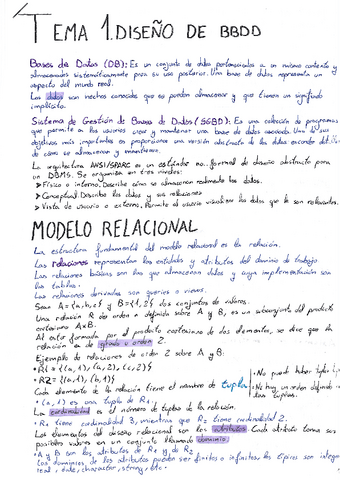 TEMA 1. DISEÑO DE BBDD
Bases de Datos (DB): Es un conjunto de datos pertenecientes a un mismo contexto y
almacenados sistemáticamente para su uso posterior. Una base de datos representa un
aspecto del mundo real.
Los datos son hechos conocidos que se pueden almacenar y que tienen un significado
implícito.
Sistema de Gestión de Bases de Datos (SGBD): Es una colección de programas
que permite a los usuarios crear y mantener una base de datos asociada. Uno de sus
objetivos más importantes es proporcionar una versión abstracta de los datos
de cómo se almacenan y mantienen.
La arquitectura ANSI/SPARC es un estándar no formal de diseño abstracto para
un DBMS. Se organiza en tres niveles:
➤ Físico o interno. Describe cómo se almacenan realmente los datos.
➤ Conceptual. Describe los datos y sus relaciones
➤ Vista de usuario o externo. Permite al usuario visualizar los datos que le son relevantes.
MODELO RELACIONAL
La estructura fundamental del modelo relacional es la relación.
Las relaciones representan las entidades y atributos del dominio de trabajo
Las relaciones básicas son las que almacenan datos y cuya implementación son
las tablas.
Las relaciones derivadas son queries o views.
Sean A={a,b,c} y B={1,2} dos conjuntos de valores.
Una relación R de orden 2 definida sobre A y B, es un subconjunto del producto
cartesiano AxB.
Al estar formada por el producto cartesiano de dos elementos, se dice que la
relación es de grado u orden 2.
Ejemplo de relaciones de orden 2 sobre A y B:
• R1 = {(a,1), (a,2), (c,2)}
• R2 = {(a,1), (b,1)}
• No puede haber tuplas
• No hay un orden definido
tuplas.
Cada elemento de la relación tiene el nombre de tupla
• (a,1) es una tupla de R1.
La cardinalidad es el número de tuplas de la relación.
• R1 tiene cardinalidad 3, mientras que R2 tiene cardinalidad 2.
Los elementos del diseño relacional son los atributos. Cada atributo toma sus
posibles valores en un conjunto llamado dominio.
• A y B son los atributos de R1 y de R2
Los dominios de los atributos pueden ser finitos o infinitos, los típicos son integer
real, date, character, string, etc.